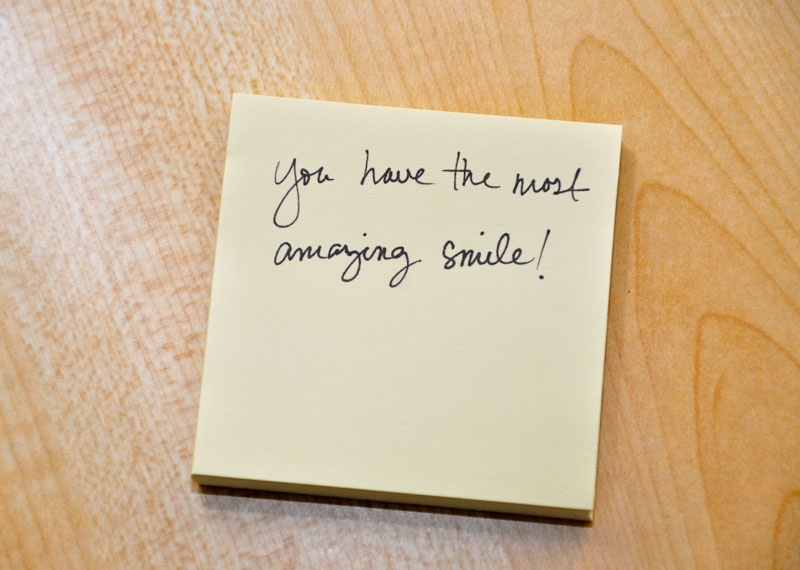 You have the most
amazing smile!